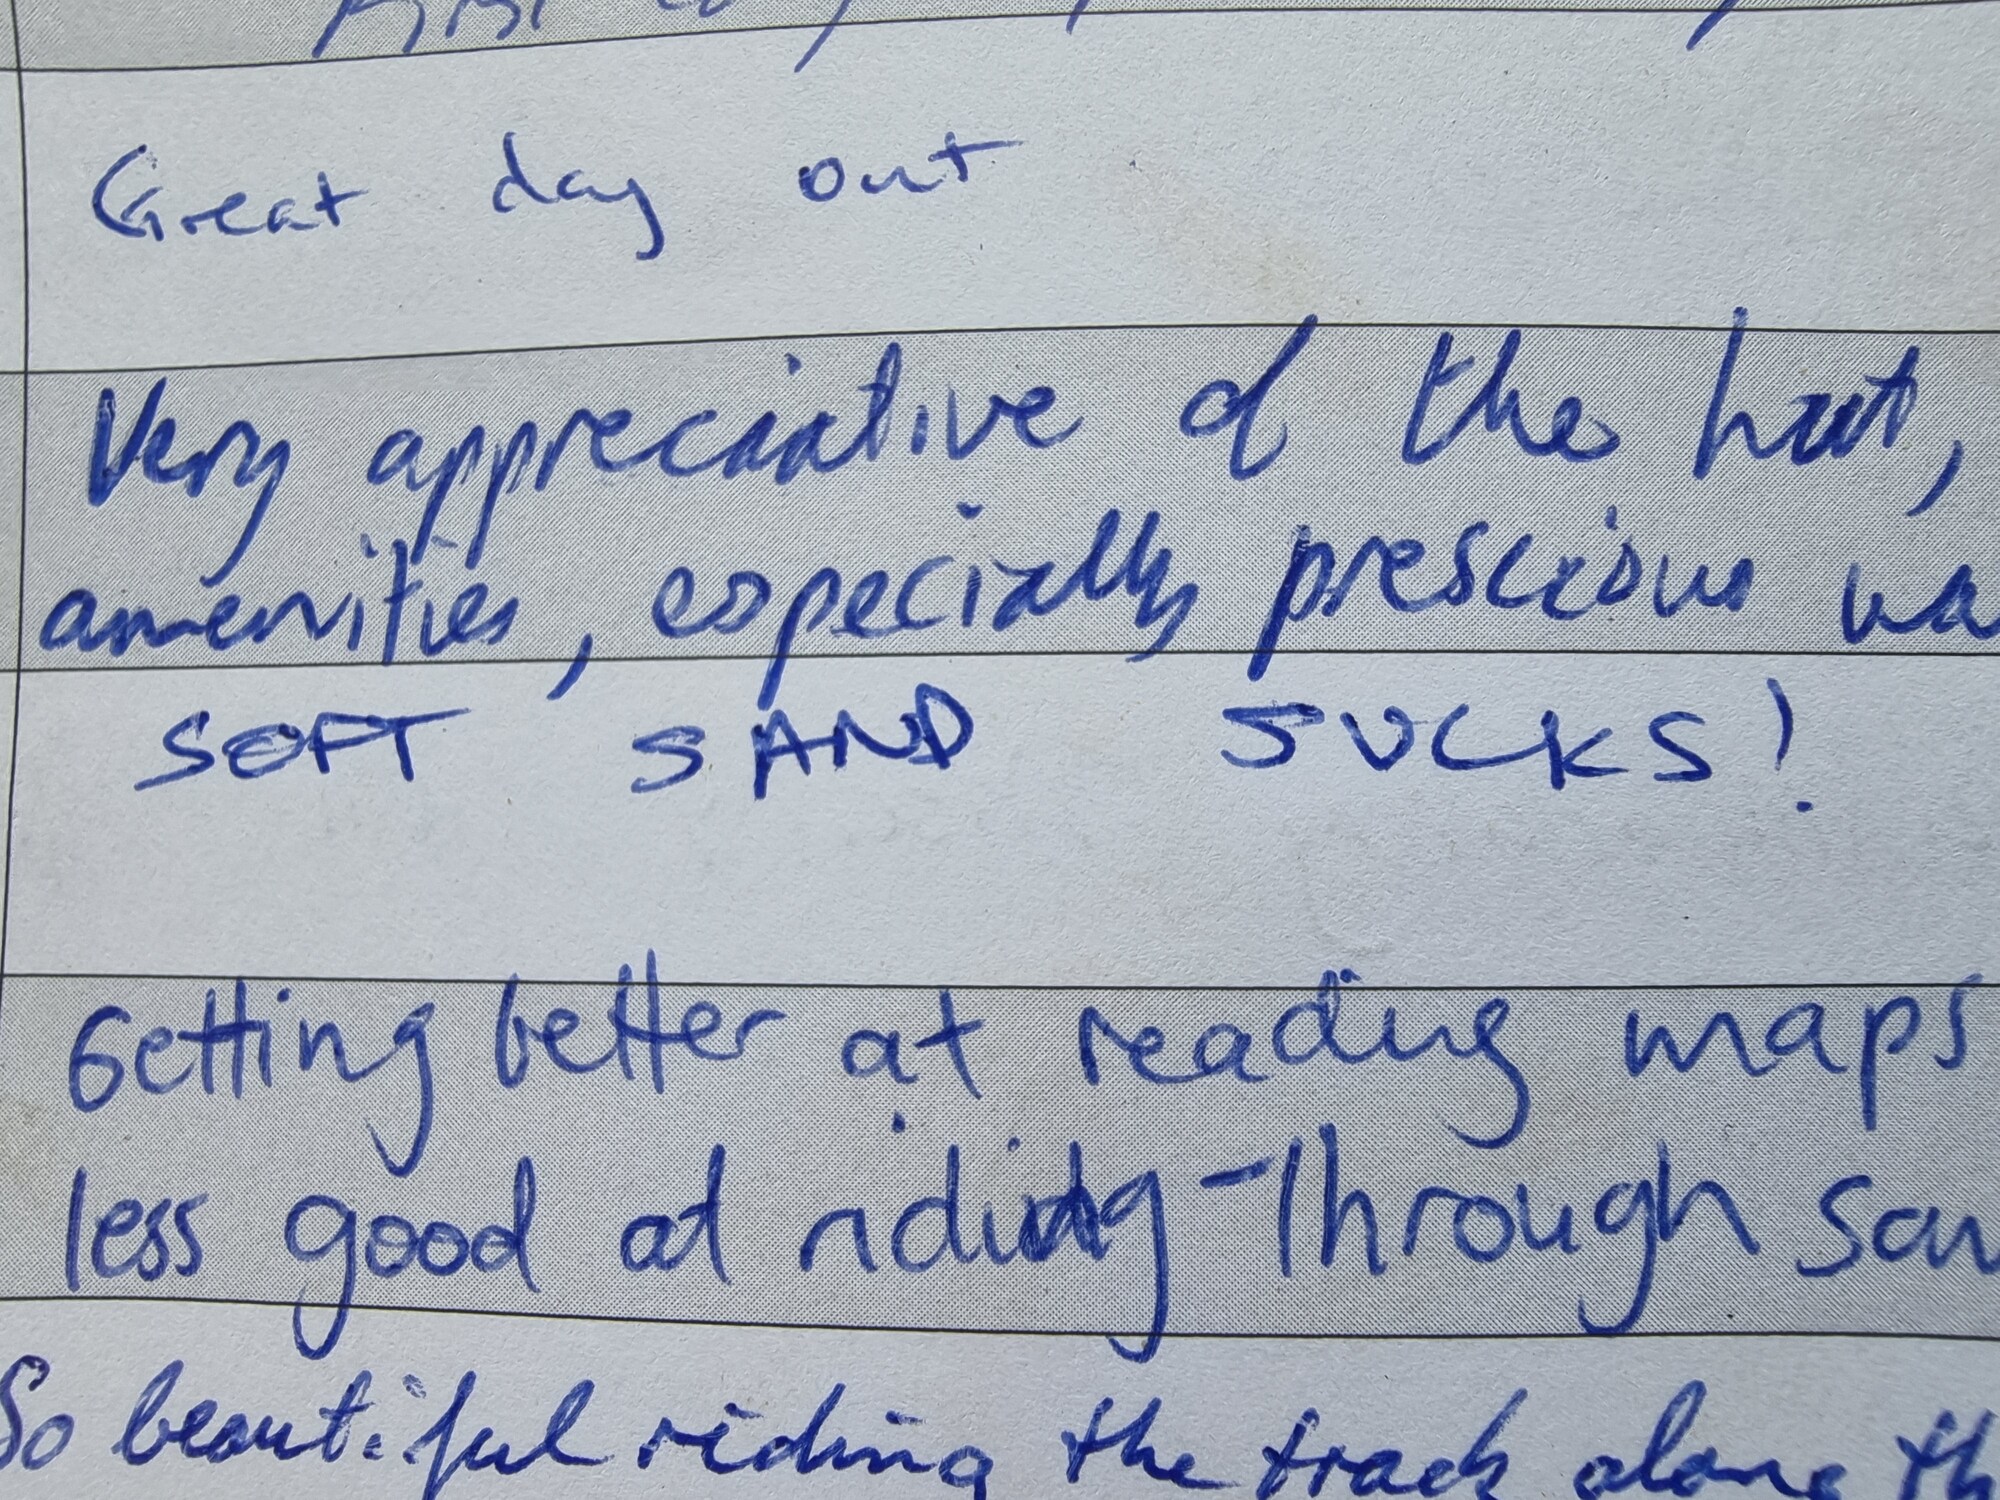 Great day out
Very appreciative of the hut,
amenities, especially prescious wa
SOFT SAND SUCKS!
Getting better at reading maps
less good at riding through san
So beautiful riding the track along th